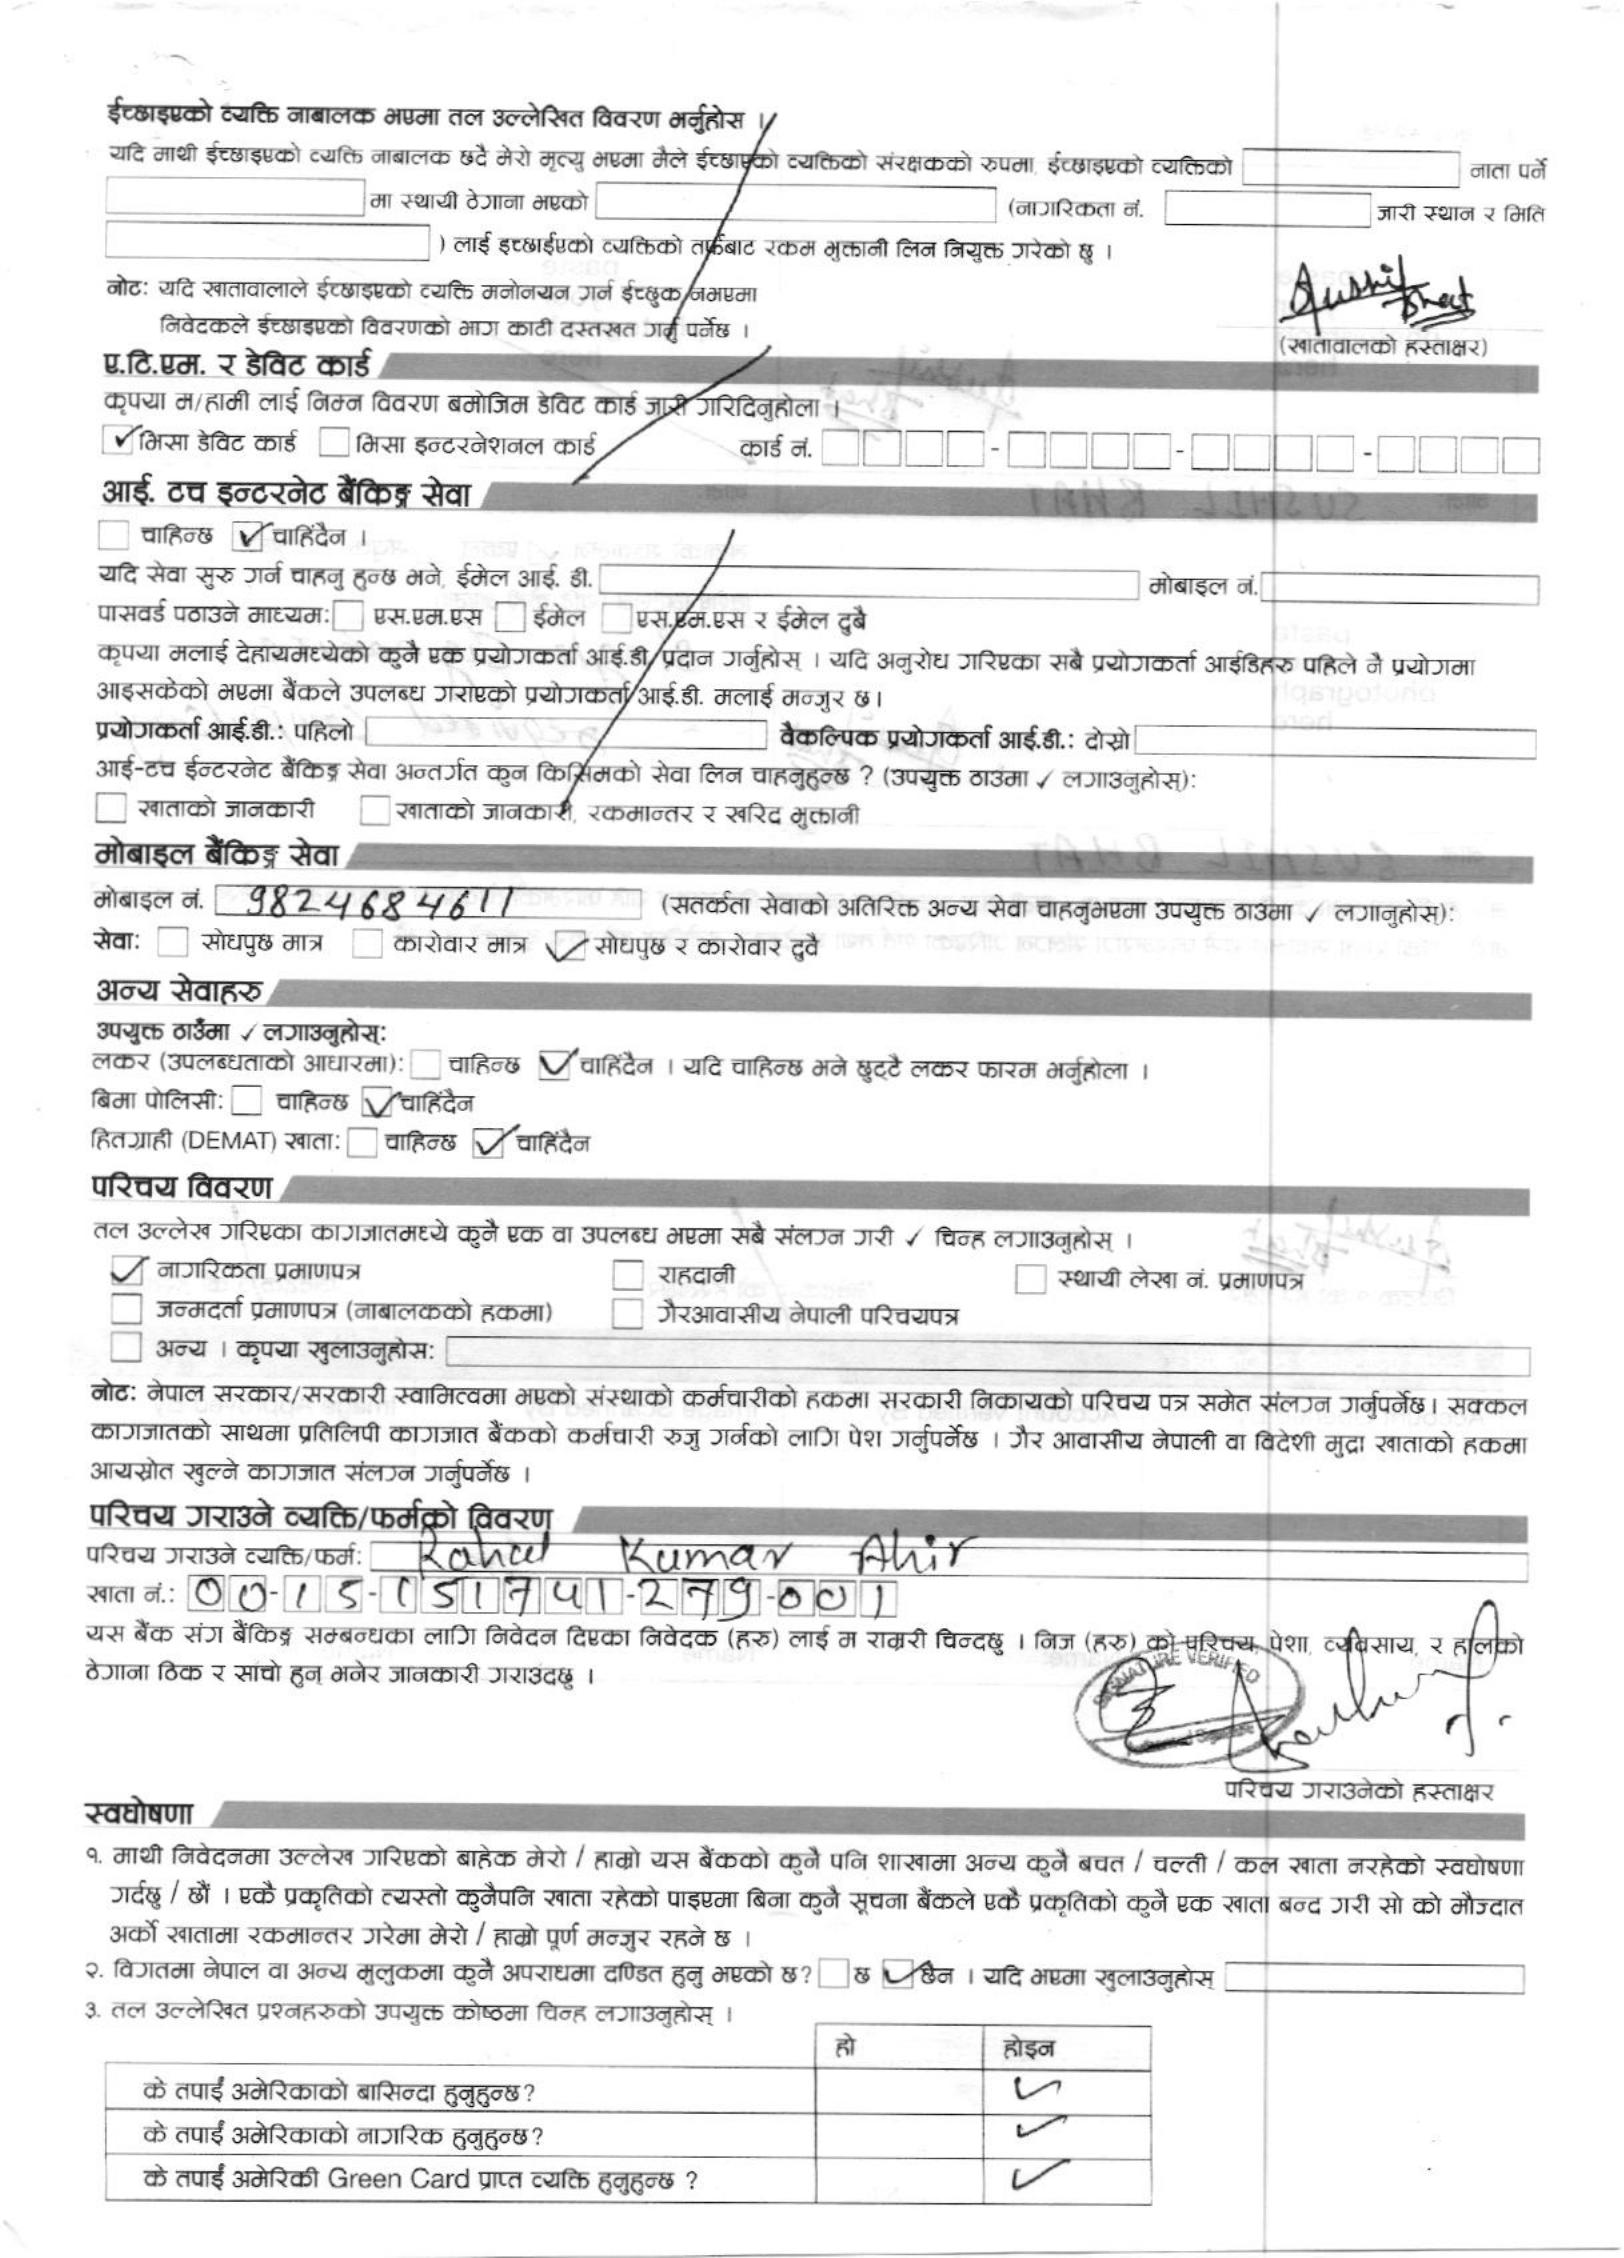 ईच्छाइएको व्यक्ति नाबालक भएमा तल उल्लेखित विवरण भर्नुहोस ।
यदि माथी ईच्छाइएको व्यक्ति नाबालक छदै मेरो मृत्यु भएमा मैले ईच्छाएको व्यक्तिको संरक्षकको रुपमा, ईच्छाइएको व्यक्तिको नाता पर्ने
मा स्थायी ठेगाना भएको (नागरिकता नं. जारी स्थान र मिति
) लाई इच्छाईएको व्यक्तिको तर्फबाट रकम भुक्तानी लिन नियुक्त गरेको छु ।
नोट: यदि खातावालाले ईच्छाइएको व्यक्ति मनोनयन गर्न ईच्छुक नभएमा
निवेदकले ईच्छाइएको विवरणको भाग काटी दस्तखत गर्नु पर्नेछ ।
Sushil Bhat
(खातावालको हस्ताक्षर)
ए.टि.एम. र डेविट कार्ड
कृपया म/हामी लाई निम्न विवरण बमोजिम डेविट कार्ड जारी गरिदिनुहोला ।
✓ भिसा डेविट कार्ड भिसा इन्टरनेशनल कार्ड कार्ड नं. - - -
आई. टच इन्टरनेट बैंकिङ्ग सेवा
चाहिन्छ ✓ चाहिंदैन ।
यदि सेवा सुरु गर्न चाहनु हुन्छ भने, ईमेल आई. डी. मोबाइल नं.
पासवर्ड पठाउने माध्यम: एस.एम.एस ईमेल एस.एम.एस र ईमेल दुबै
कृपया मलाई देहायमध्येको कुनै एक प्रयोगकर्ता आई.डी प्रदान गर्नुहोस् । यदि अनुरोध गरिएका सबै प्रयोगकर्ता आईडिहरु पहिले नै प्रयोगमा
आइसकेको भएमा बैंकले उपलब्ध गराएको प्रयोगकर्ता आई.डी. मलाई मन्जुर छ।
प्रयोगकर्ता आई.डी.: पहिलो वैकल्पिक प्रयोगकर्ता आई.डी.: दोस्रो
आई-टच ईन्टरनेट बैंकिङ्ग सेवा अन्तर्गत कुन किसिमको सेवा लिन चाहनुहुन्छ ? (उपयुक्त ठाउंमा ✓ लगाउनुहोस्):
खाताको जानकारी खाताको जानकारी, रकमान्तर र खरिद भुक्तानी
मोबाइल बैंकिङ्ग सेवा
मोबाइल नं. 9824684611 (सतर्कता सेवाको अतिरिक्त अन्य सेवा चाहनुभएमा उपयुक्त ठाउंमा ✓ लगानुहोस्):
सेवा: सोधपुछ मात्र कारोवार मात्र ✓ सोधपुछ र कारोवार दुवै
अन्य सेवाहरु
उपयुक्त ठाउँमा ✓ लगाउनुहोस्:
लकर (उपलब्धताको आधारमा): चाहिन्छ ✓ चाहिंदैन । यदि चाहिन्छ भने छुट्टै लकर फारम भर्नुहोला ।
बिमा पोलिसी: चाहिन्छ ✓ चाहिंदैन
हितग्राही (DEMAT) खाता: चाहिन्छ ✓ चाहिंदैन
परिचय विवरण
तल उल्लेख गरिएका कागजातमध्ये कुनै एक वा उपलब्ध भएमा सबै संलग्न गरी ✓ चिन्ह लगाउनुहोस् ।
✓ नागरिकता प्रमाणपत्र राहदानी स्थायी लेखा नं. प्रमाणपत्र
जन्मदर्ता प्रमाणपत्र (नाबालकको हकमा) गैरआवासीय नेपाली परिचयपत्र
अन्य । कृपया खुलाउनुहोस:
नोट: नेपाल सरकार/सरकारी स्वामित्वमा भएको संस्थाको कर्मचारीको हकमा सरकारी निकायको परिचय पत्र समेत संलग्न गर्नुपर्नेछ। सक्कल
कागजातको साथमा प्रतिलिपी कागजात बैंकको कर्मचारी रुजु गर्नको लागि पेश गर्नुपर्नेछ । गैर आवासीय नेपाली वा विदेशी मुद्रा खाताको हकमा
आयस्रोत खुल्ने कागजात संलग्न गर्नुपर्नेछ ।
परिचय गराउने व्यक्ति/फर्मको विवरण
परिचय गराउने व्यक्ति/फर्म: Rahul Kumar Ahir
खाता नं.: 00-15-151741-279-001
यस बैंक संग बैंकिङ्ग सम्बन्धका लागि निवेदन दिएका निवेदक (हरु) लाई म राम्ररी चिन्दछु । निज (हरु) को परिचय, पेशा, व्यविसाय, र हालको
ठेगाना ठिक र सांचो हुन् भनेर जानकारी गराउंदछु ।
SIGNATURE VERIFIED
परिचय गराउनेको हस्ताक्षर
स्वघोषणा
१. माथी निवेदनमा उल्लेख गरिएको बाहेक मेरो / हाम्रो यस बैंकको कुनै पनि शाखामा अन्य कुनै बचत / चल्ती / कल खाता नरहेको स्वघोषणा
गर्दछु / छौं । एकै प्रकृतिको त्यस्तो कुनैपनि खाता रहेको पाइएमा बिना कुनै सूचना बैंकले एकै प्रकृतिको कुनै एक खाता बन्द गरी सो को मौज्दात
अर्को खातामा रकमान्तर गरेमा मेरो / हाम्रो पूर्ण मन्जुर रहने छ ।
२. विगतमा नेपाल वा अन्य मुलुकमा कुनै अपराधमा दण्डित हुनु भएको छ? छ ✓ छैन । यदि भएमा खुलाउनुहोस्
३. तल उल्लेखित प्रश्नहरुको उपयुक्त कोष्ठमा चिन्ह लगाउनुहोस् ।
हो होइन
के तपाईं अमेरिकाको बासिन्दा हुनुहुन्छ? ✓
के तपाईं अमेरिकाको नागरिक हुनुहुन्छ? ✓
के तपाईं अमेरिकी Green Card प्राप्त व्यक्ति हुनुहुन्छ ? ✓